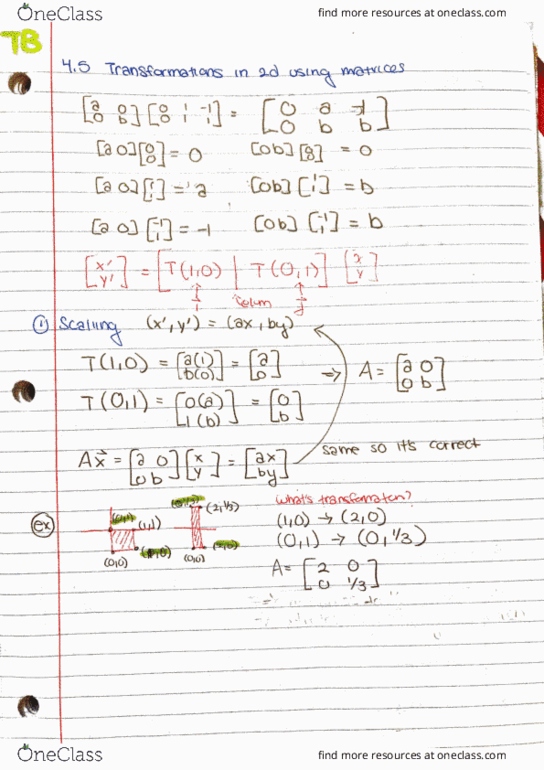 OneClass find more resources at oneclass.com
TB
4.5 Transformations in 2d using matrices
[a 0; 0 b] [0 1 -1; 0 1 1] = [0 a -1; 0 b b]
[a 0][0; 0] = 0 [0 b][0; 0] = 0
[a 0][1; 1] = a [0 b][1; 1] = b
[a 0][-1; 1] = -1 [0 b][-1; 1] = b
[x'; y'] = [T(1,0) | T(0,1)] [x; y]
① Scaling (x', y') = (ax, by)
T(1,0) = [a(1); b(0)] = [a; 0]
⇒ A = [a 0; 0 b]
T(0,1) = [0(a); 1(b)] = [0; b]
Ax⃗ = [a 0; 0 b][x; y] = [ax; by] same so it's correct
ex
(1,1) (2,1/3)
(0,0) (0,0)
what's transformation?
(1,0) → (2,0)
(0,1) → (0,1/3)
A = [2 0; 0 1/3]
OneClass find more resources at oneclass.com